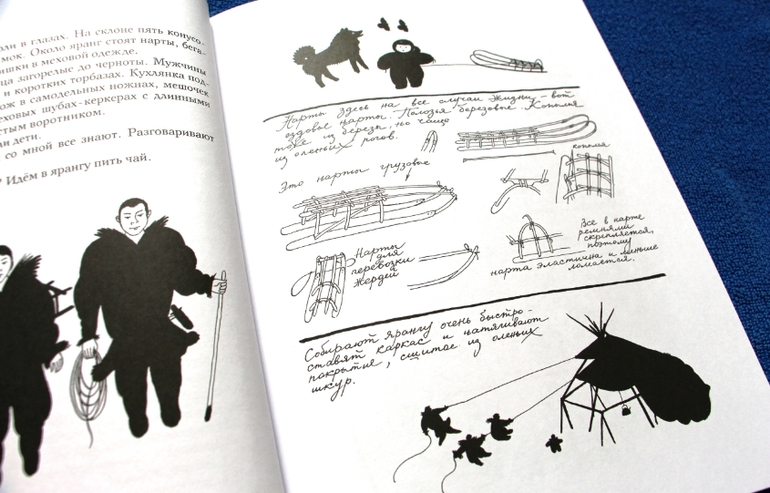 ли в глазах. На склоне пять конусо-
мок. Около яранг стоят нарты, бега-
ишки в меховой одежде.
ца загорелые до черноты. Мужчины
и коротких торбазах. Кухлянка под-
ож в самодельных ножнах, мешочек
еховых шубах-керкерах с длинными
стым воротником.
и дети.
со мной все знают. Разговаривают
? Идём в ярангу пить чай.
Нарты здесь на все случаи жизни – вот
ездовые нарты. Полозья березовые. Копылья
тоже из березы, но чаще
из оленьих рогов.
копылья
Это нарты грузовые
Нарты
для
перевозки
жердей
Все в нарте
ремнями
скрепляется,
поэтому
нарта эластична и меньше
ломается.
Собирают ярангу очень быстро-
ставят каркас и натягивают
покрытие, сшитое из оленьих
шкур.